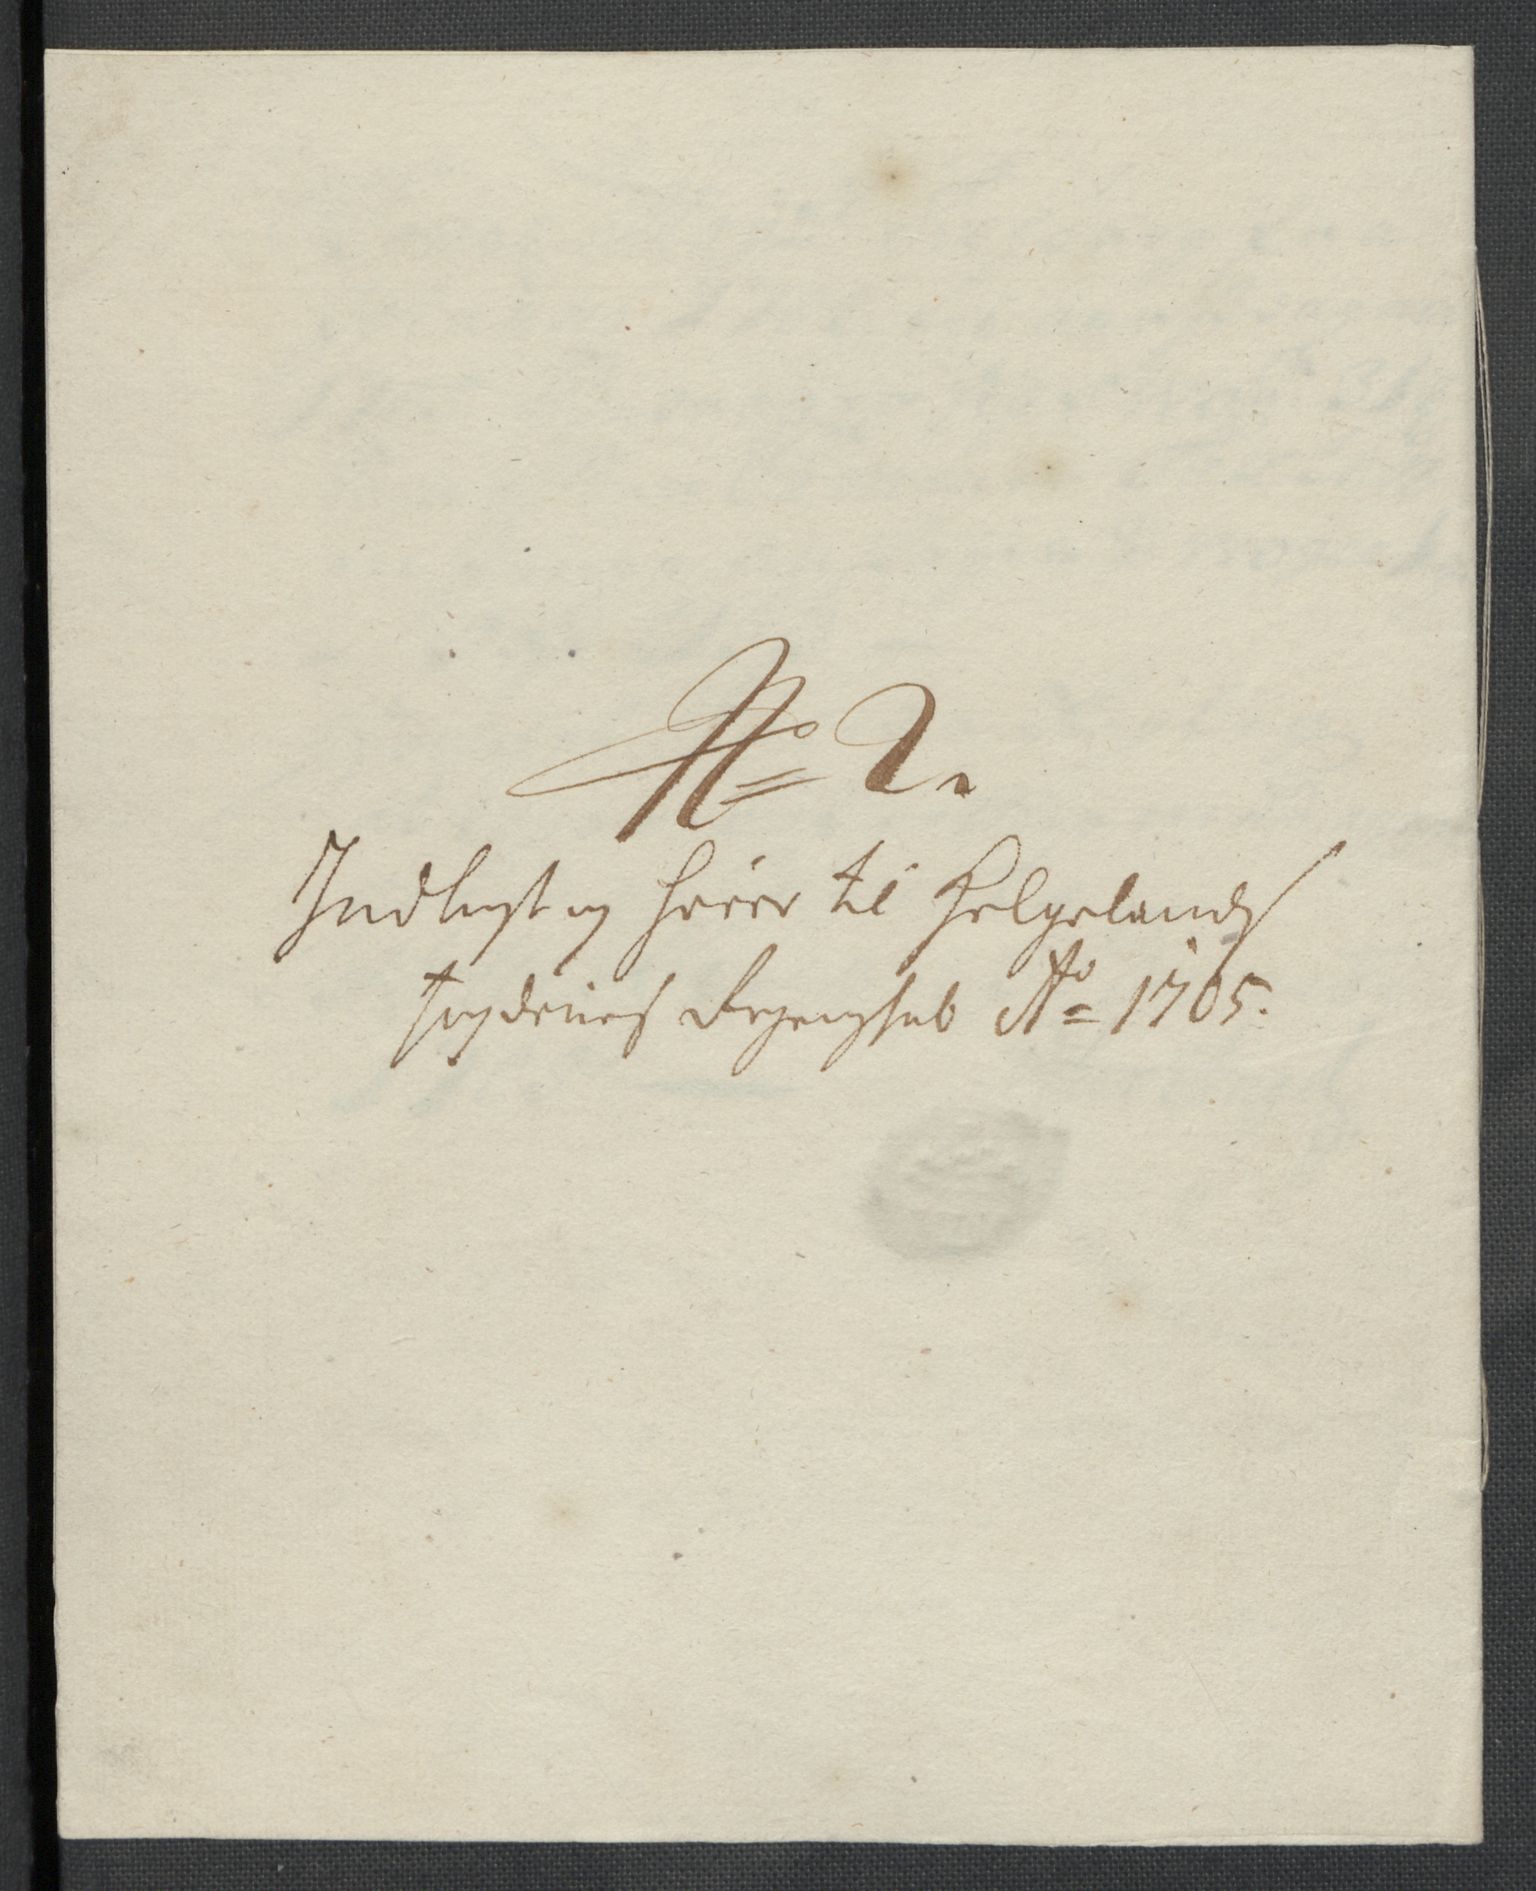 No 2.
Indlagt og hører til Helgelands
fogderies Regenskab Ao 1705.